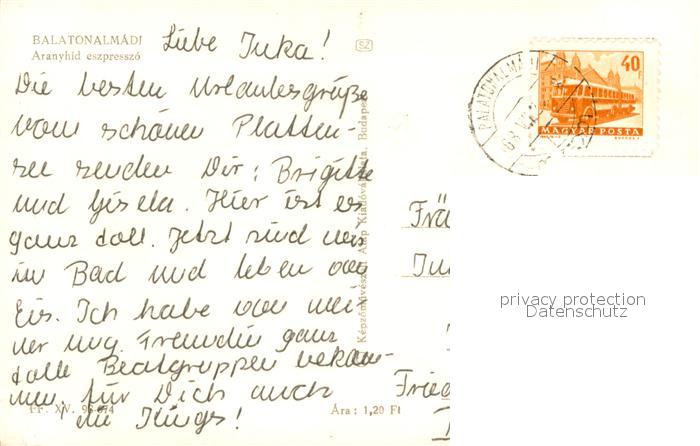 BALATONALMÁDI
Aranyhíd eszpresszó
SZ
Liebe Juka!
Die besten Urlaubsgrüße
vom schönen Platten-
see senden Dir: Brigitte
und Gisela. Hier ist es
ganz doll. Jetzt sind wir
im Bad und leben von
Eis. Ich habe von mei-
ner ung. Freundin ganz
dolle Beatgruppen bekom-
men, für Dich auch
die Kings!
XV. 96
Ára: 1,20 Ft
Képzőművészeti Alap Kiadóvállalata, Budapest
BALATONALMÁDI
40f
MAGYAR POSTA
Frä
Ju
Fried
privacy protection
Datenschutz